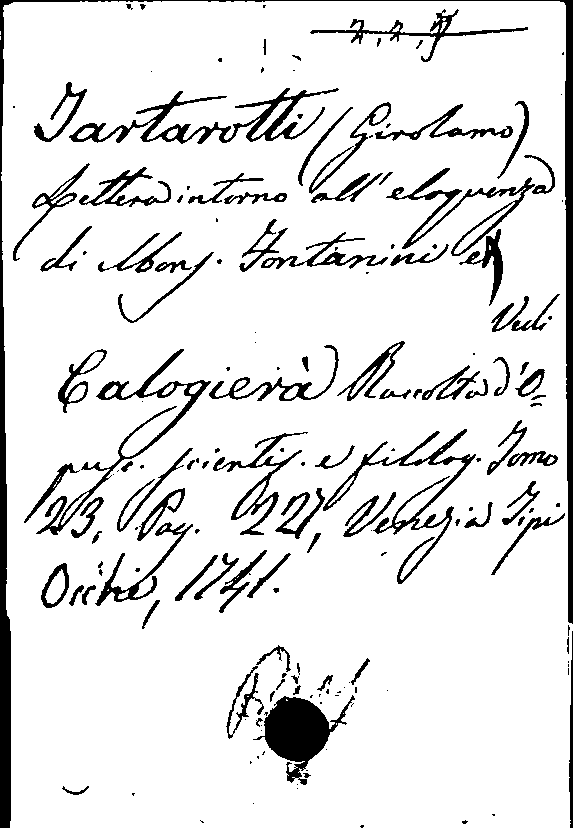 2, 2, 7
Tartarotti (Girolamo)
Lettera intorno all' eloquenza
di Mons. Fontanini &
Vedi
Calogierà Raccolta d'O=
pusc. scientif. e filolog. Tomo
23, Pag. 227, Venezia Tipi
Occhi, 1741.